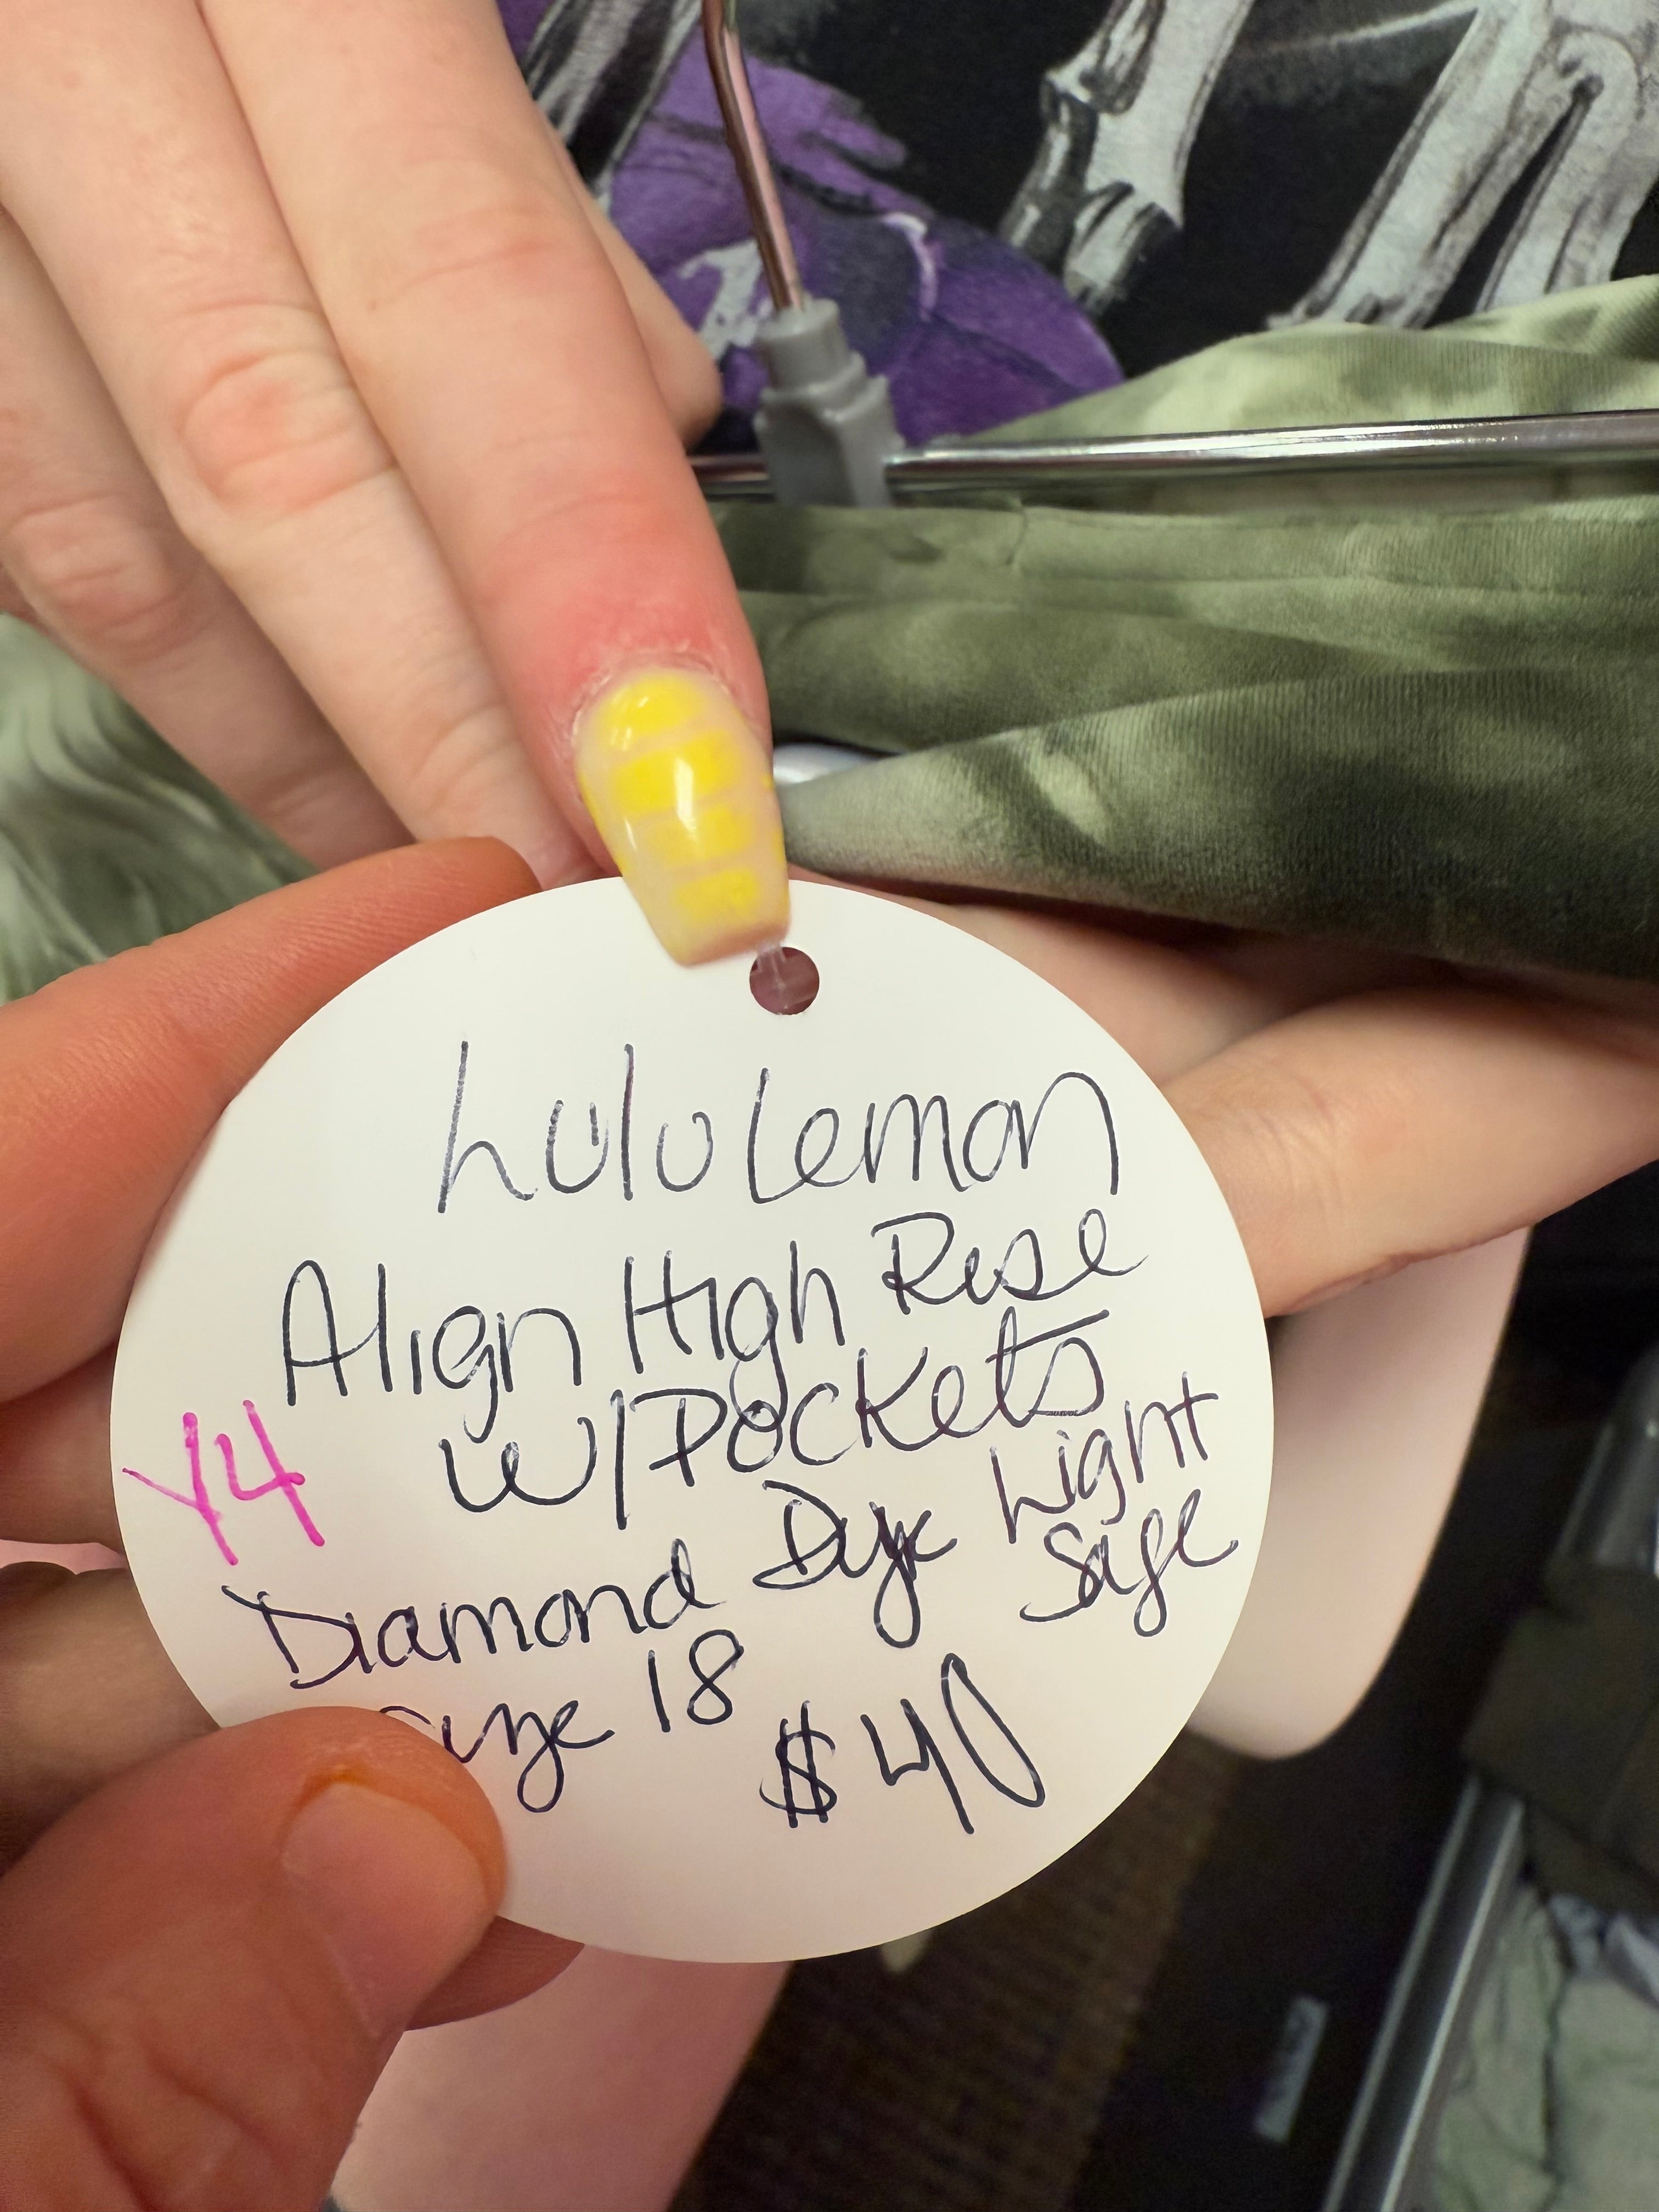 LuluLemon
Align High Rise
W/Pockets
Y4
Diamond Dye Light
Sage
Size 18
$40